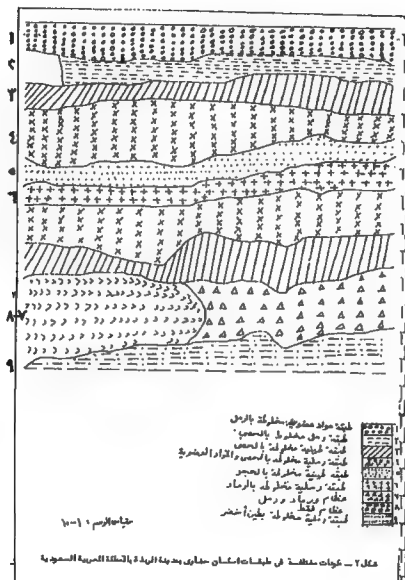 ١
٢
٣
٤
٥
٦
٨ ٧
٩
طبقة مواد عضوية مخلوطة بالرمل
طبقة رمل مخلوط بالحصى
طبقة طينية مخلوطة بالحصى
طبقة رملية مخلوطة بالحصى والمواد العضوية
طبقة طينية مخلوطة بالحجر
طبقة رملية مخلوطه بالرماد
عظام ورماد ورمل
عظام فقط
طبقة رملية مخلوطة بطين أخضر
مقياس الرسم ١ - ١٠
شكل ٢ - طبقات اسكان حضارى بمدينة الربذة بالمملكة العربية السعودية